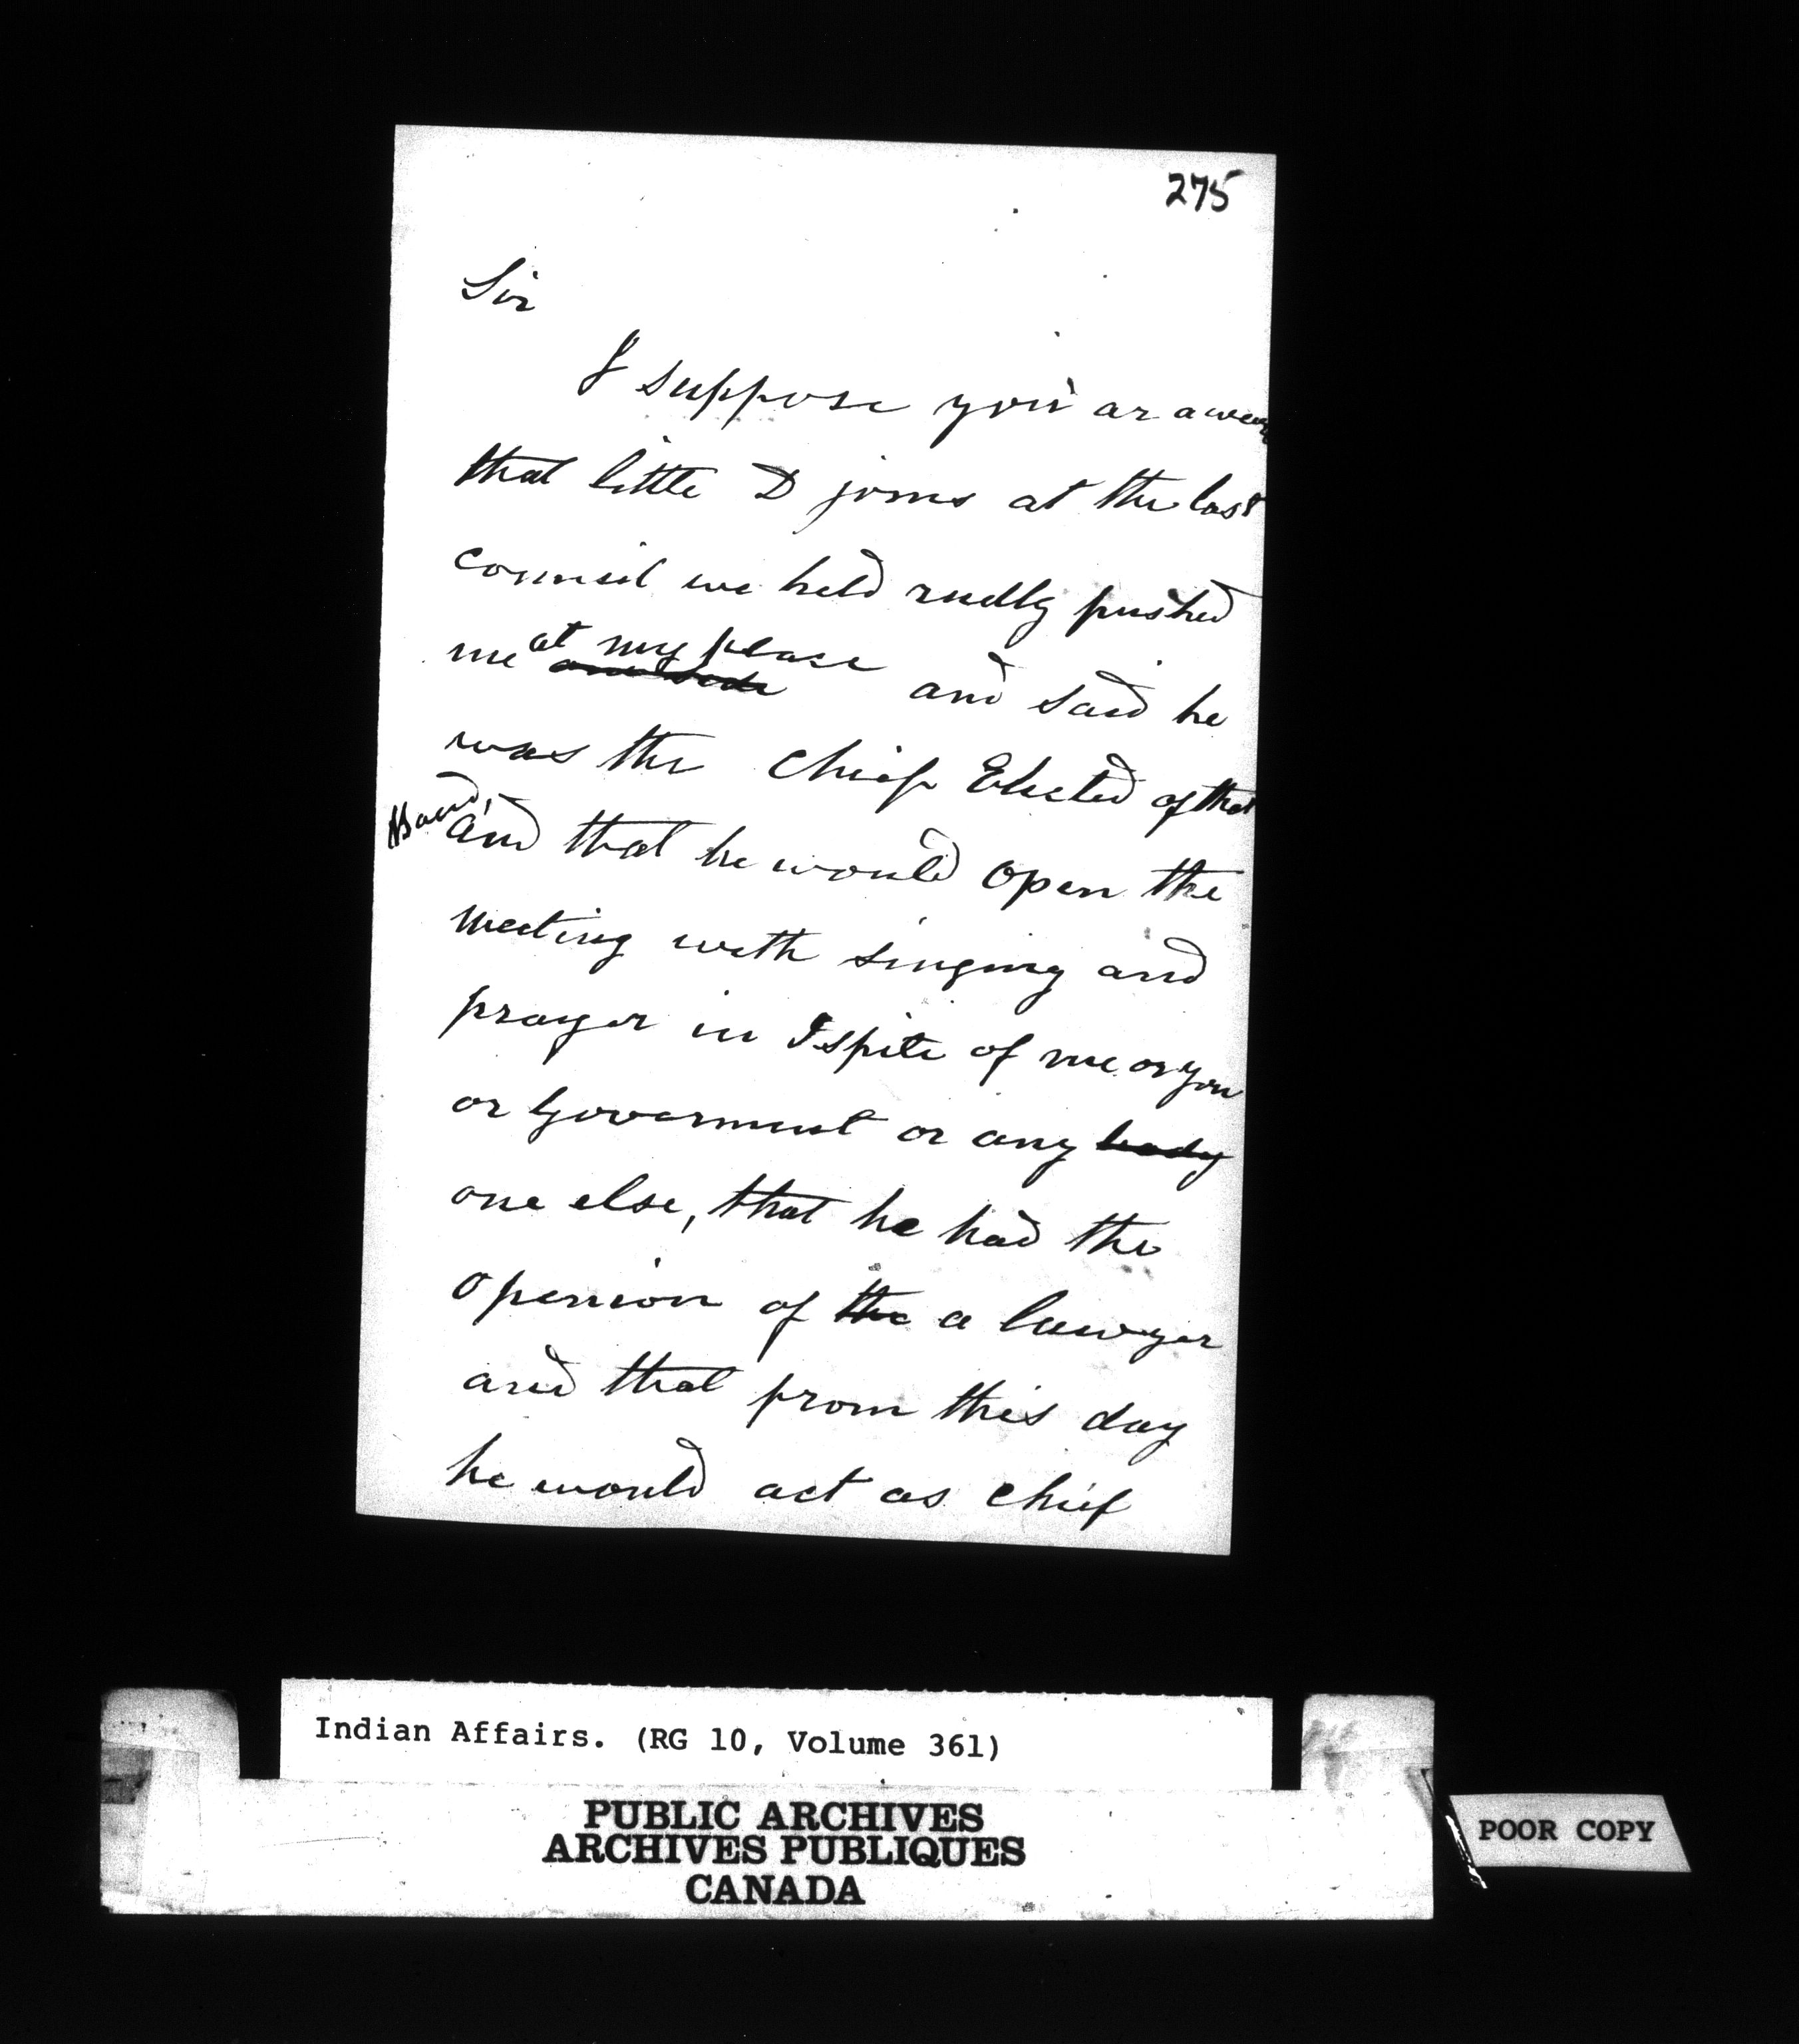 275
Sir
I suppose you ar awear
that little D joms at the last
council we held rudly pushed
me at my plase and said he
was the chief Elected of that
Band, and that he would open the
meeting with singing and
prayer in Ispite of me or you
or Goverment or any body
one else, that he had the
openion of the a lawyer
and that from this day
he would act as chief
Indian Affairs. (RG 10, Volume 361)
PUBLIC ARCHIVES
ARCHIVES PUBLIQUES
CANADA
POOR COPY